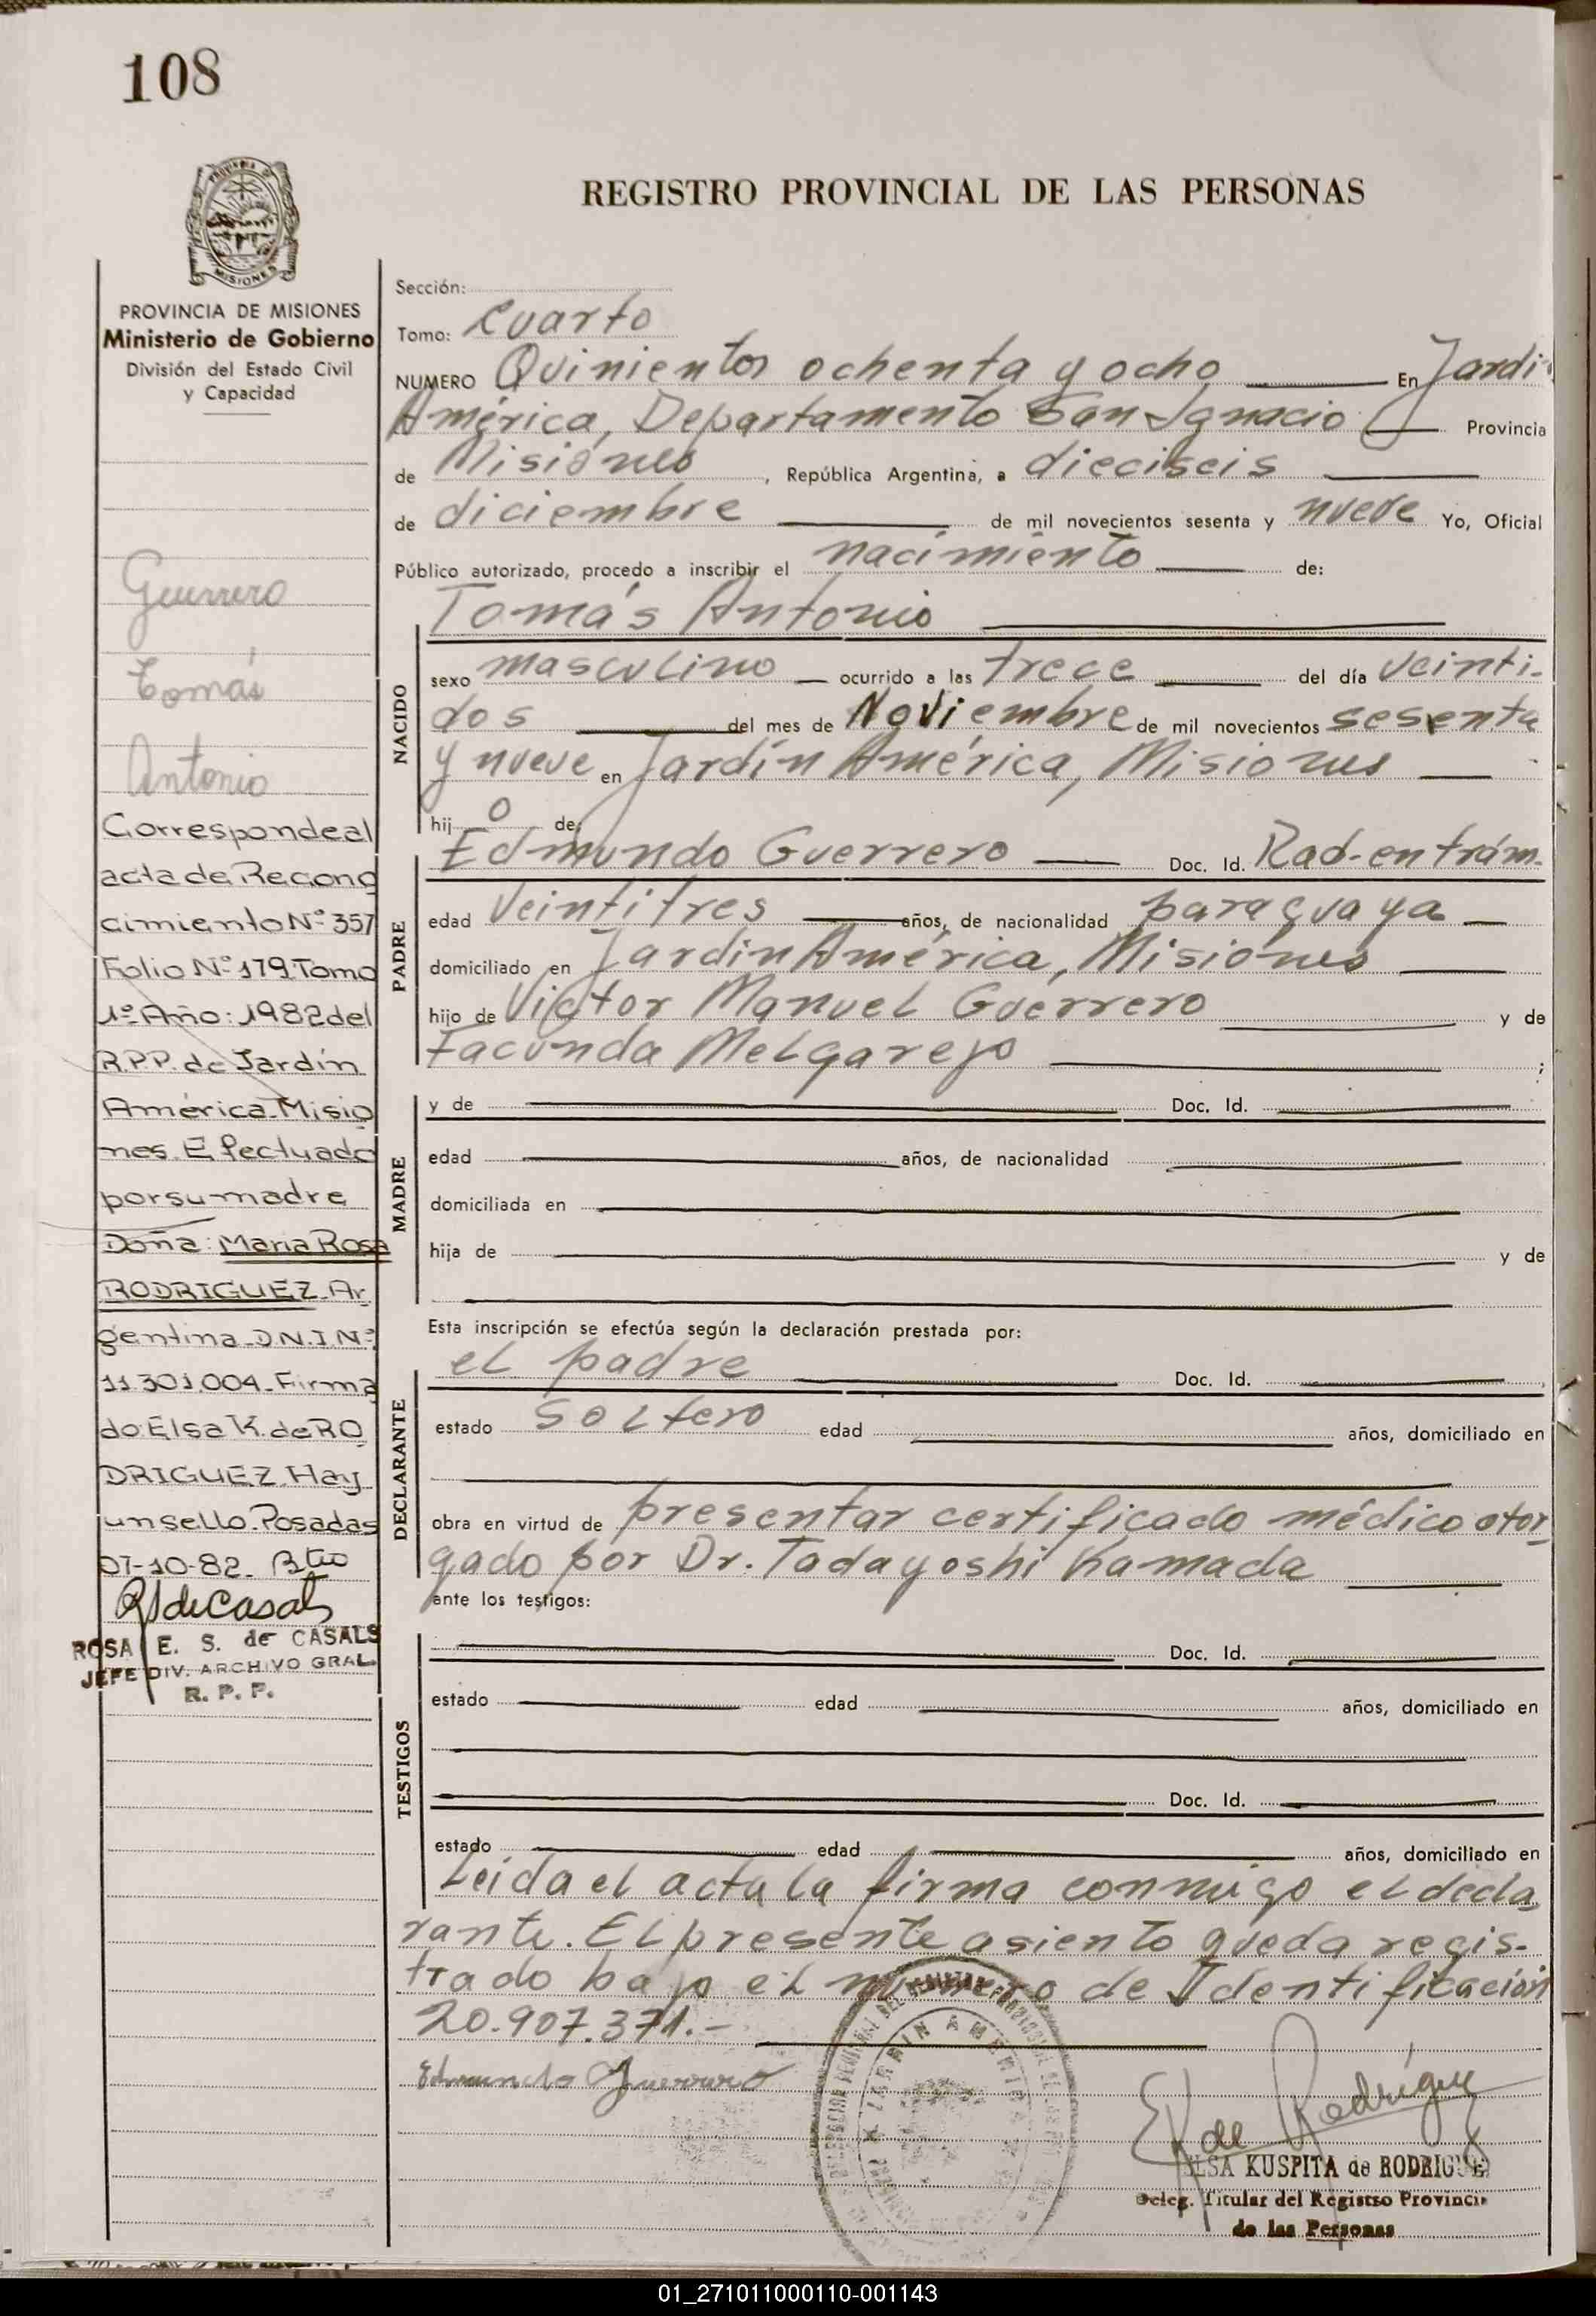 108
PROVINCIA DE MISIONES
Ministerio de Gobierno
División del Estado Civil
y Capacidad
Guerrero
Tomás
Antonio
Corresponde al
acta de Recono
cimiento Nº 357
Folio Nº 179. Tomo
1º Año: 1982 del
R.P.P. de Jardín
América. Misio
nes. Efectuado
por su madre
Doña: Maria Rosa
RODRIGUEZ. Ar
gentina. D.N.I. Nº
11.301.004. Firma
do: Elsa K. de RO
DRIGUEZ. Hay
un sello. Posadas
07-10-82.
ROSA E. S. de CASALS
JEFE DIV. ARCHIVO GRAL.
R. P. P.
REGISTRO PROVINCIAL DE LAS PERSONAS
Sección:
Tomo: Cuarto
NUMERO Quinientos ochenta y ocho En Jardí
América, Departamento San Ignacio Provincia
de Misiones, República Argentina, a dieciseis
de diciembre de mil novecientos sesenta y nueve Yo, Oficial
Público autorizado, procedo a inscribir el nacimiento de:
Tomás Antonio
NACIDO
sexo masculino ocurrido a las trece del día veinti-
dos del mes de Noviembre de mil novecientos sesenta
y nueve en Jardín América, Misiones
hij o de:
PADRE
Edmundo Guerrero Doc. Id. Rad. en trám.
edad Veintitres años, de nacionalidad paraguaya
domiciliado en Jardin América, Misiones
hijo de Victor Manuel Guerrero y de
Facunda Melgarejo ;
MADRE
y de Doc. Id.
edad años, de nacionalidad
domiciliada en
hija de y de
Esta inscripción se efectúa según la declaración prestada por:
DECLARANTE
el padre Doc. Id.
estado soltero edad años, domiciliado en
obra en virtud de presentar certificado médico otor-
gado por Dr. Tadayoshi Kamada
ante los testigos:
TESTIGOS
Doc. Id.
estado edad años, domiciliado en
Doc. Id.
estado edad años, domiciliado en
Leida el acta la firma conmigo el decla
rante. El presente asiento queda regis-
trado bajo el número de Identificación
20.907.371.-
Edmundo Guerrero
JARDIN AMERICA
EK de Rodríguez
ELSA KUSPITA de RODRIGUEZ
Deleg. Titular del Registro Provincia
de las Personas
01_271011000110-001143